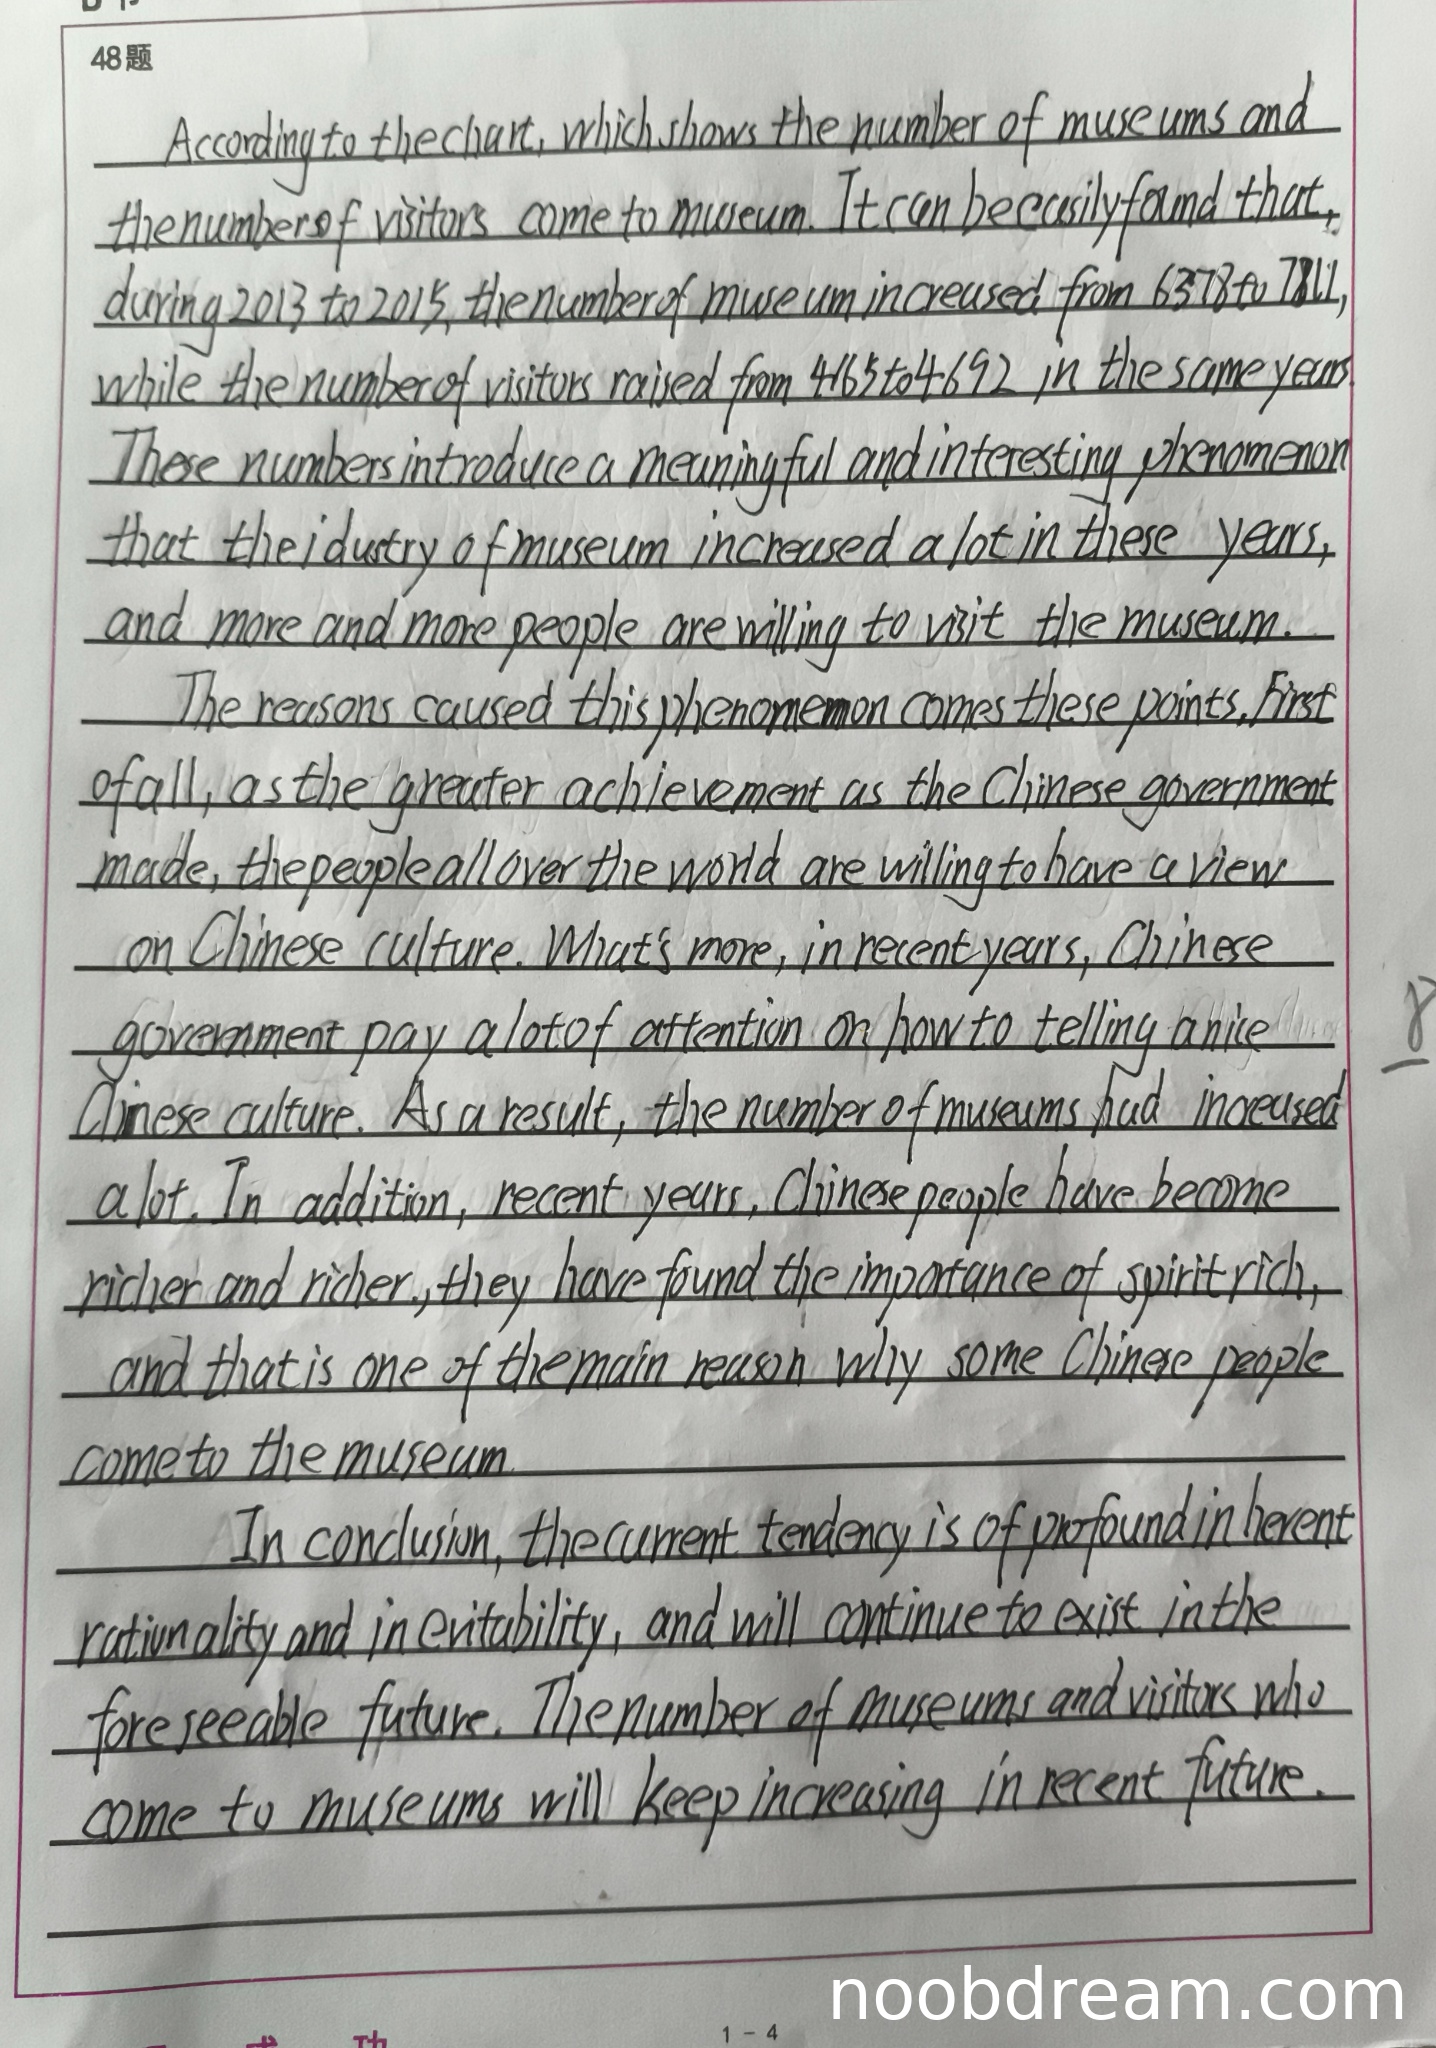 48题
According to the chart, which shows the number of museums and
the number of visitors come to museum. It can be easily found that,
during 2013 to 2015, the number of museum increased from 6378 to 7811,
while the number of visitors raised from 4165 to 4692 in the same years.
These numbers introduce a meaningful and interesting phenomenon
that the idustry of museum increased a lot in these years,
and more and more people are willing to visit the museum.
The reasons caused this phenomemon comes these points. First
of all, as the greater achievement as the Chinese government
made, the people all over the world are willing to have a view
on Chinese culture. What's more, in recent years, Chinese
government pay a lot of attention on how to telling a nice
Chinese culture. As a result, the number of museums had increased
a lot. In addition, recent years, Chinese people have become
richer and richer, they have found the importance of spirit rich,
and that is one of the main reason why some Chinese people
come to the museum.
In conclusion, the current tendency is of profound inherent
rationality and inevitability, and will continue to exist in the
foreseeable future. The number of museums and visitors who
come to museums will keep increasing in recent future.
18
1-4
noobdream.com